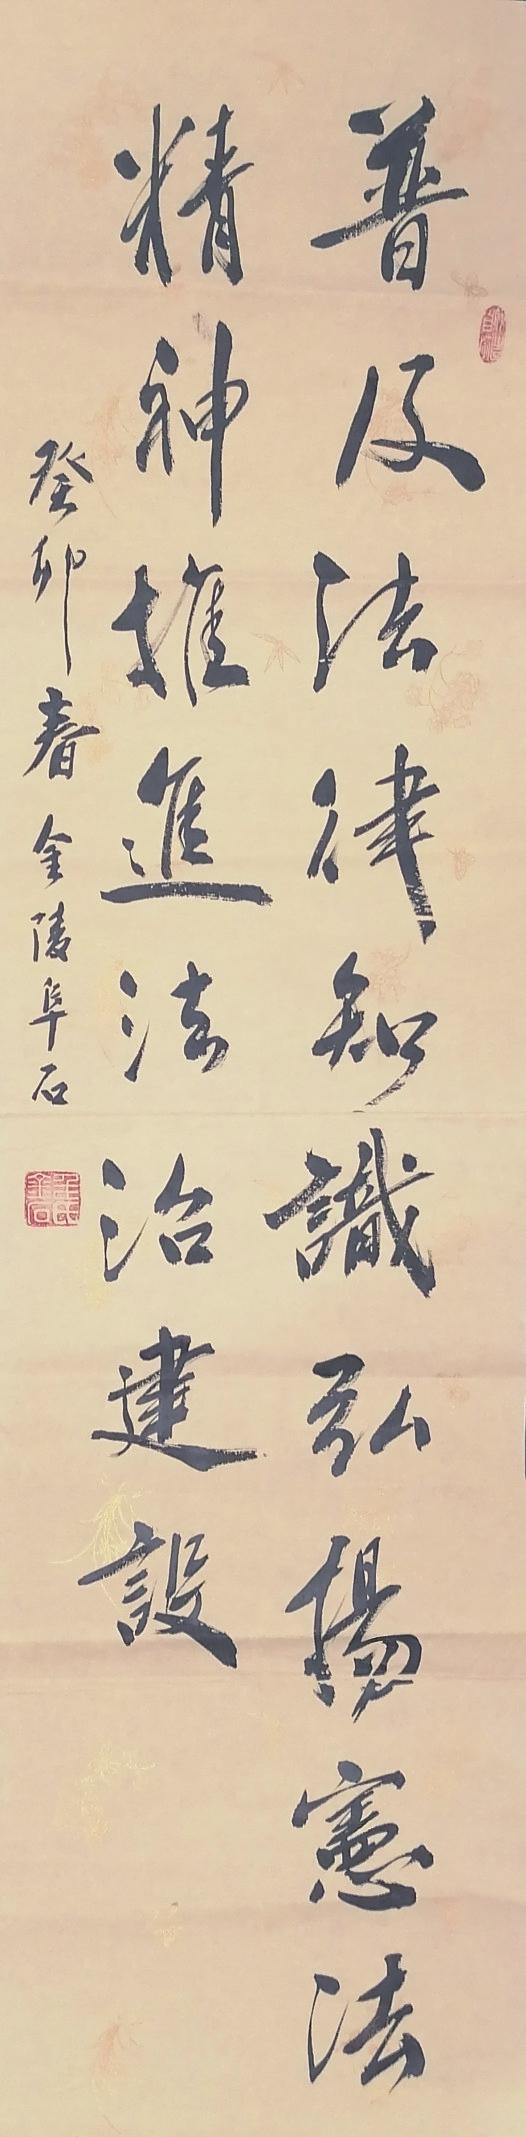 普及法律知識弘揚憲法
精神推進法治建設
癸卯春金陵阜石